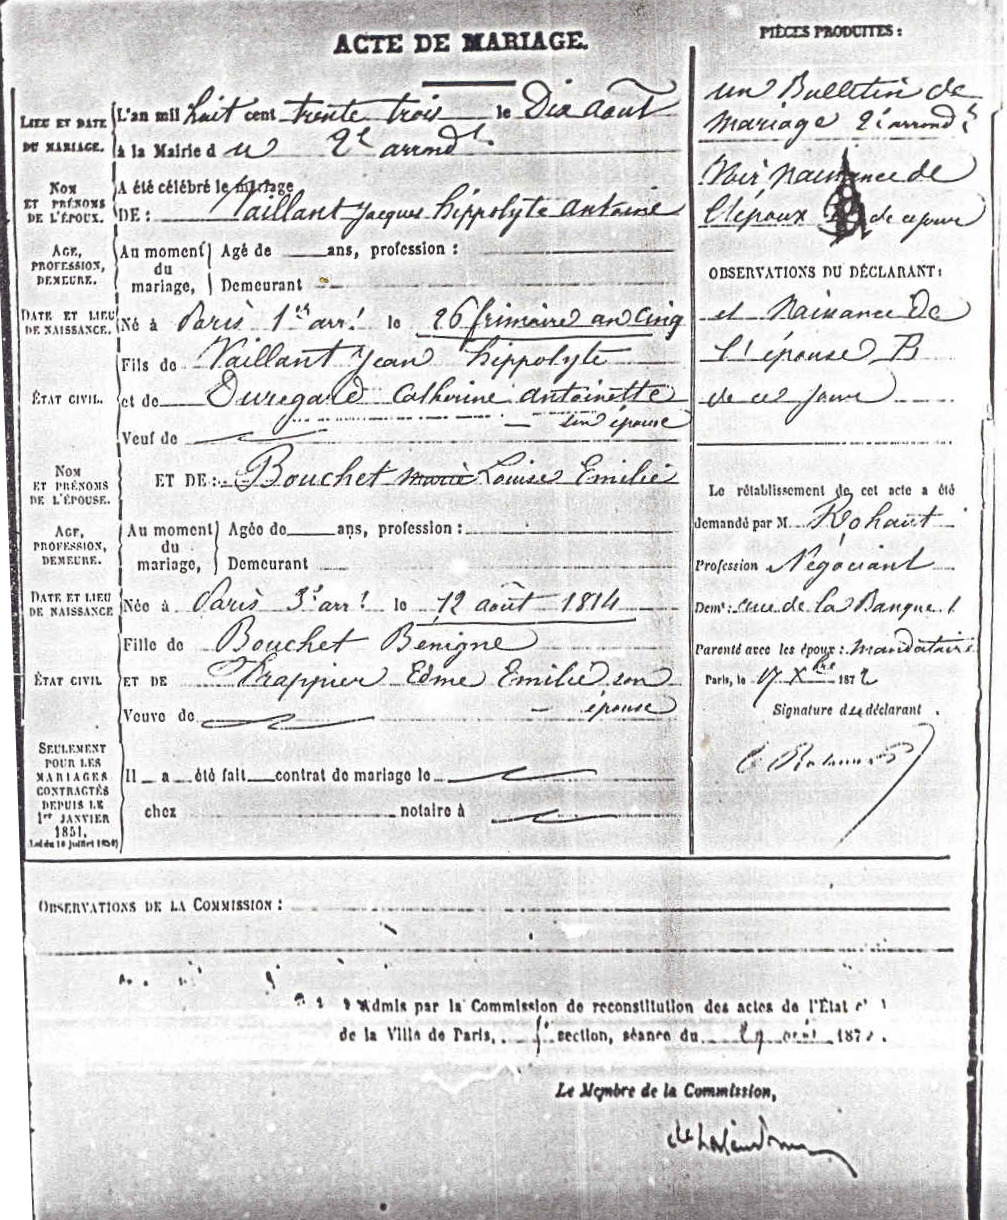 ACTE DE MARIAGE.
PIÈCES PRODUITES :
LIEU ET DATE
DU MARIAGE.
L'an mil huit cent trente trois le Dix août
à la Mairie du 2e arrondt
NOM
ET PRÉNOMS
DE L'ÉPOUX.
A été célébré le mariage
DE : Vaillant Jacques hippolyte antoine
AGE,
PROFESSION,
DEMEURE.
Au moment
du
mariage,
Agé de ans, profession :
Demeurant
DATE ET LIEU
DE NAISSANCE.
Né à Paris 1er arrt le 26 frimaire an Cinq
Fils de Vaillant Jean hippolyte
ÉTAT CIVIL.
et de Duregard Catherine antoinette
son épouse
Veuf de
NOM
ET PRÉNOMS
DE L'ÉPOUSE.
ET DE : Bouchet Marie Louise Emilie
AGE,
PROFESSION,
DEMEURE.
Au moment
du
mariage,
Agée de ans, profession :
Demeurant
DATE ET LIEU
DE NAISSANCE
Née à Paris 3e arrt le 12 août 1814
Fille de Bouchet Bénigne
ÉTAT CIVIL
ET DE Trappier Edme Emilie son
épouse
Veuve de
SEULEMENT
POUR LES
MARIAGES
CONTRACTÉS
DEPUIS LE
1er JANVIER
1851.
(Loi du 10 juillet 1850)
Il a été fait contrat de mariage le
chez notaire à
un Bulletin de
mariage 2e arrondt
Voir Naissance de
l'époux de ce jour
OBSERVATIONS DU DÉCLARANT :
et Naissance De
l'épouse B
de ce jour
Le rétablissement de cet acte a été
demandé par M. Rohaut
Profession Négociant
Demt : rue de la Banque 1
Parenté avec les époux : mandataire
Paris, le 17 Xbre 1872
Signature du déclarant
OBSERVATIONS DE LA COMMISSION :
Admis par la Commission de reconstitution des actes de l'État
de la Ville de Paris, section, séance du 187
Le Membre de la Commission,